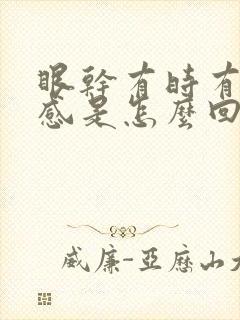 眼幹有時有
感是怎麼回
威廉-亞歷山大